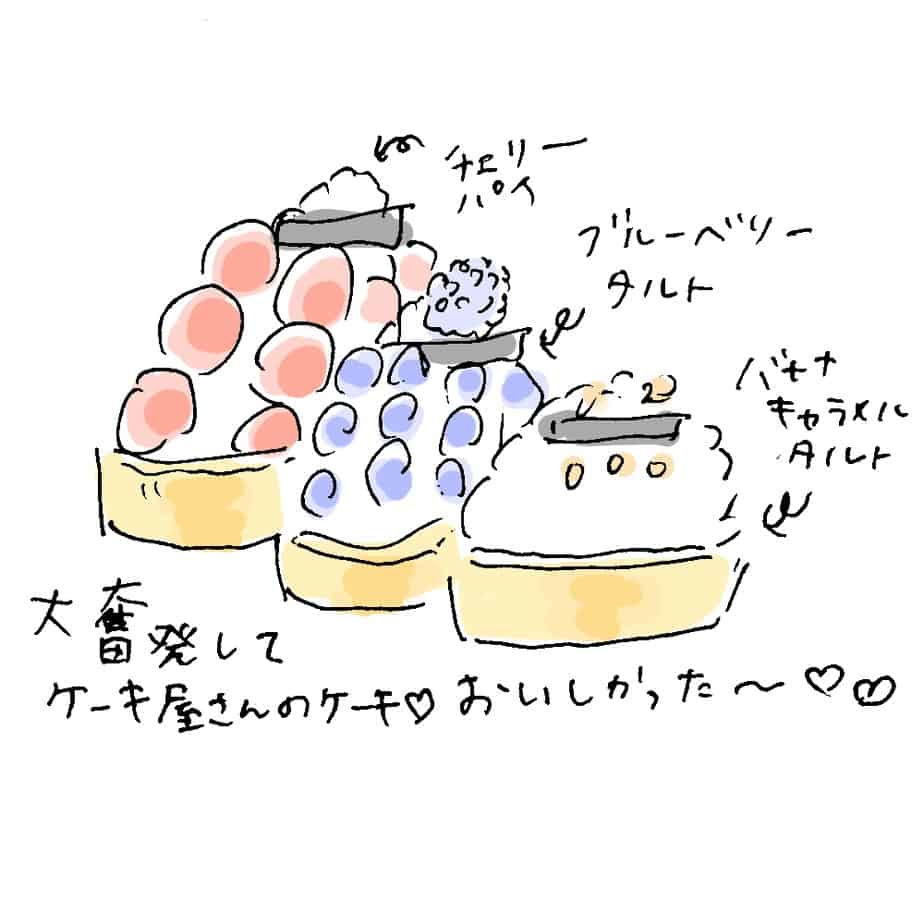 チェリー
パイ
ブルーベリー
タルト
バナナ
キャラメル
タルト
大奮発して
ケーキ屋さんのケーキ♡おいしかった〜♡♡